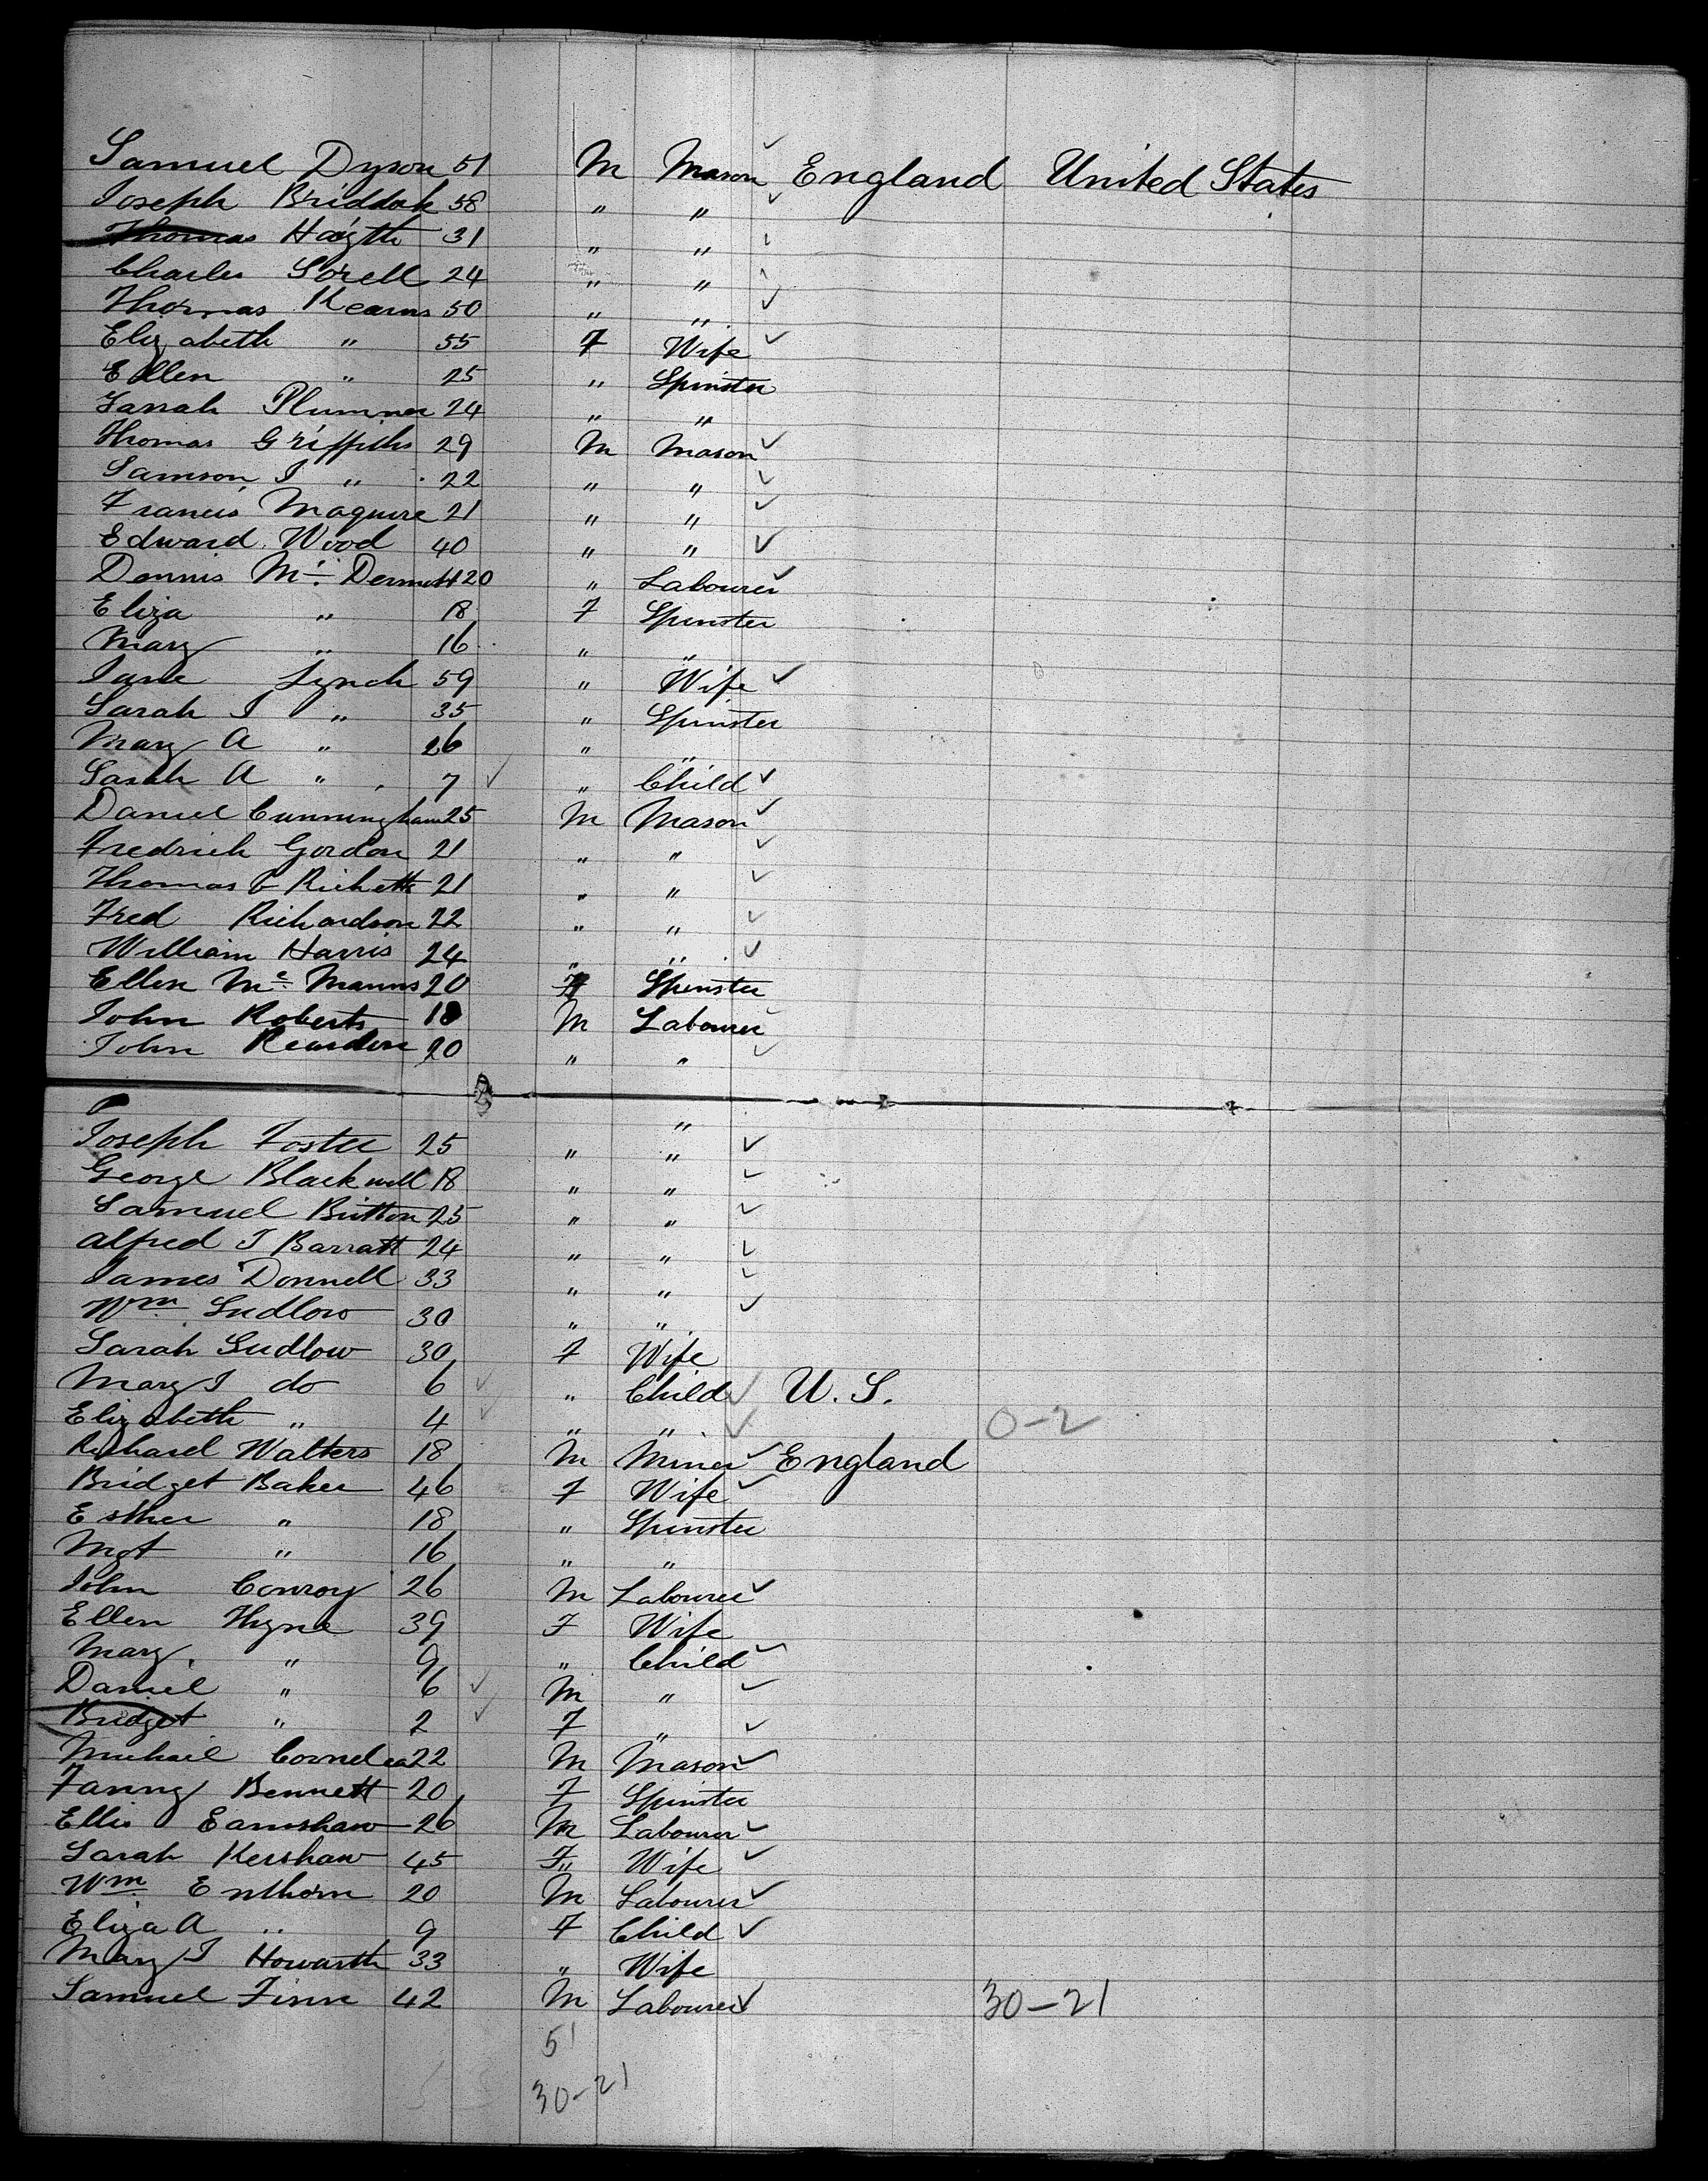 Samuel Dyson 51 M Mason England United States
Joseph Briddok 58 " "
Thomas Haigth 31 " "
Charles Sorell 24 " "
Thomas Kearns 50 " "
Elizabeth " 55 F Wife
Ellen " 25 " Spinster
Sarrah Plummer 24 " "
Thomas Griffiths 29 M Mason
Samson J " 22 " "
Francis Maguire 21 " "
Edward Wood 40 " "
Dennis Mc Dermott 20 " Labourer
Eliza " 18 F Spinster
Mary " 16 " "
Jane Lynch 59 " Wife
Sarah J " 35 " Spinster
Mary A " 26 " "
Sarah A " 7 " Child
Daniel Cunningham 25 M Mason
Fredrich Gordon 21 " "
Thomas Ricketts 21 " "
Fred Richardson 22 " "
William Harris 24 " "
Ellen Mc Manns 20 F Spinster
John Roberts 18 M Labourer
John Reardon 20 " "
"
Joseph Foster 25 " "
George Blackwell 18 " "
Samuel Britton 25 " "
Alfred J Barratt 24 " "
James Donnell 33 " "
Wm Ludlow 30 " "
Sarah Ludlow 30 F Wife
Mary J do 6 " Child U. S.
Elizabeth " 4 " " 0-2
Richard Walters 18 M Miner England
Bridget Baker 46 F Wife
Esther " 18 " Spinster
Mgt " 16 " "
John Conroy 26 M Labourer
Ellen Hyne 39 F Wife
Mary " 9 " Child
Daniel " 6 M "
Bridget " 2 F "
Michail Cornelea 22 M Mason
Fanny Bennett 20 F Spinster
Ellis Earnshaw 26 M Labourer
Sarah Kershaw 45 F " Wife
Wm Enthorn 20 M Labourer
Eliza A " 9 F Child
Mary J Howarth 33 " Wife
Samuel Finn 42 M Labourer 30-21
51
30-21